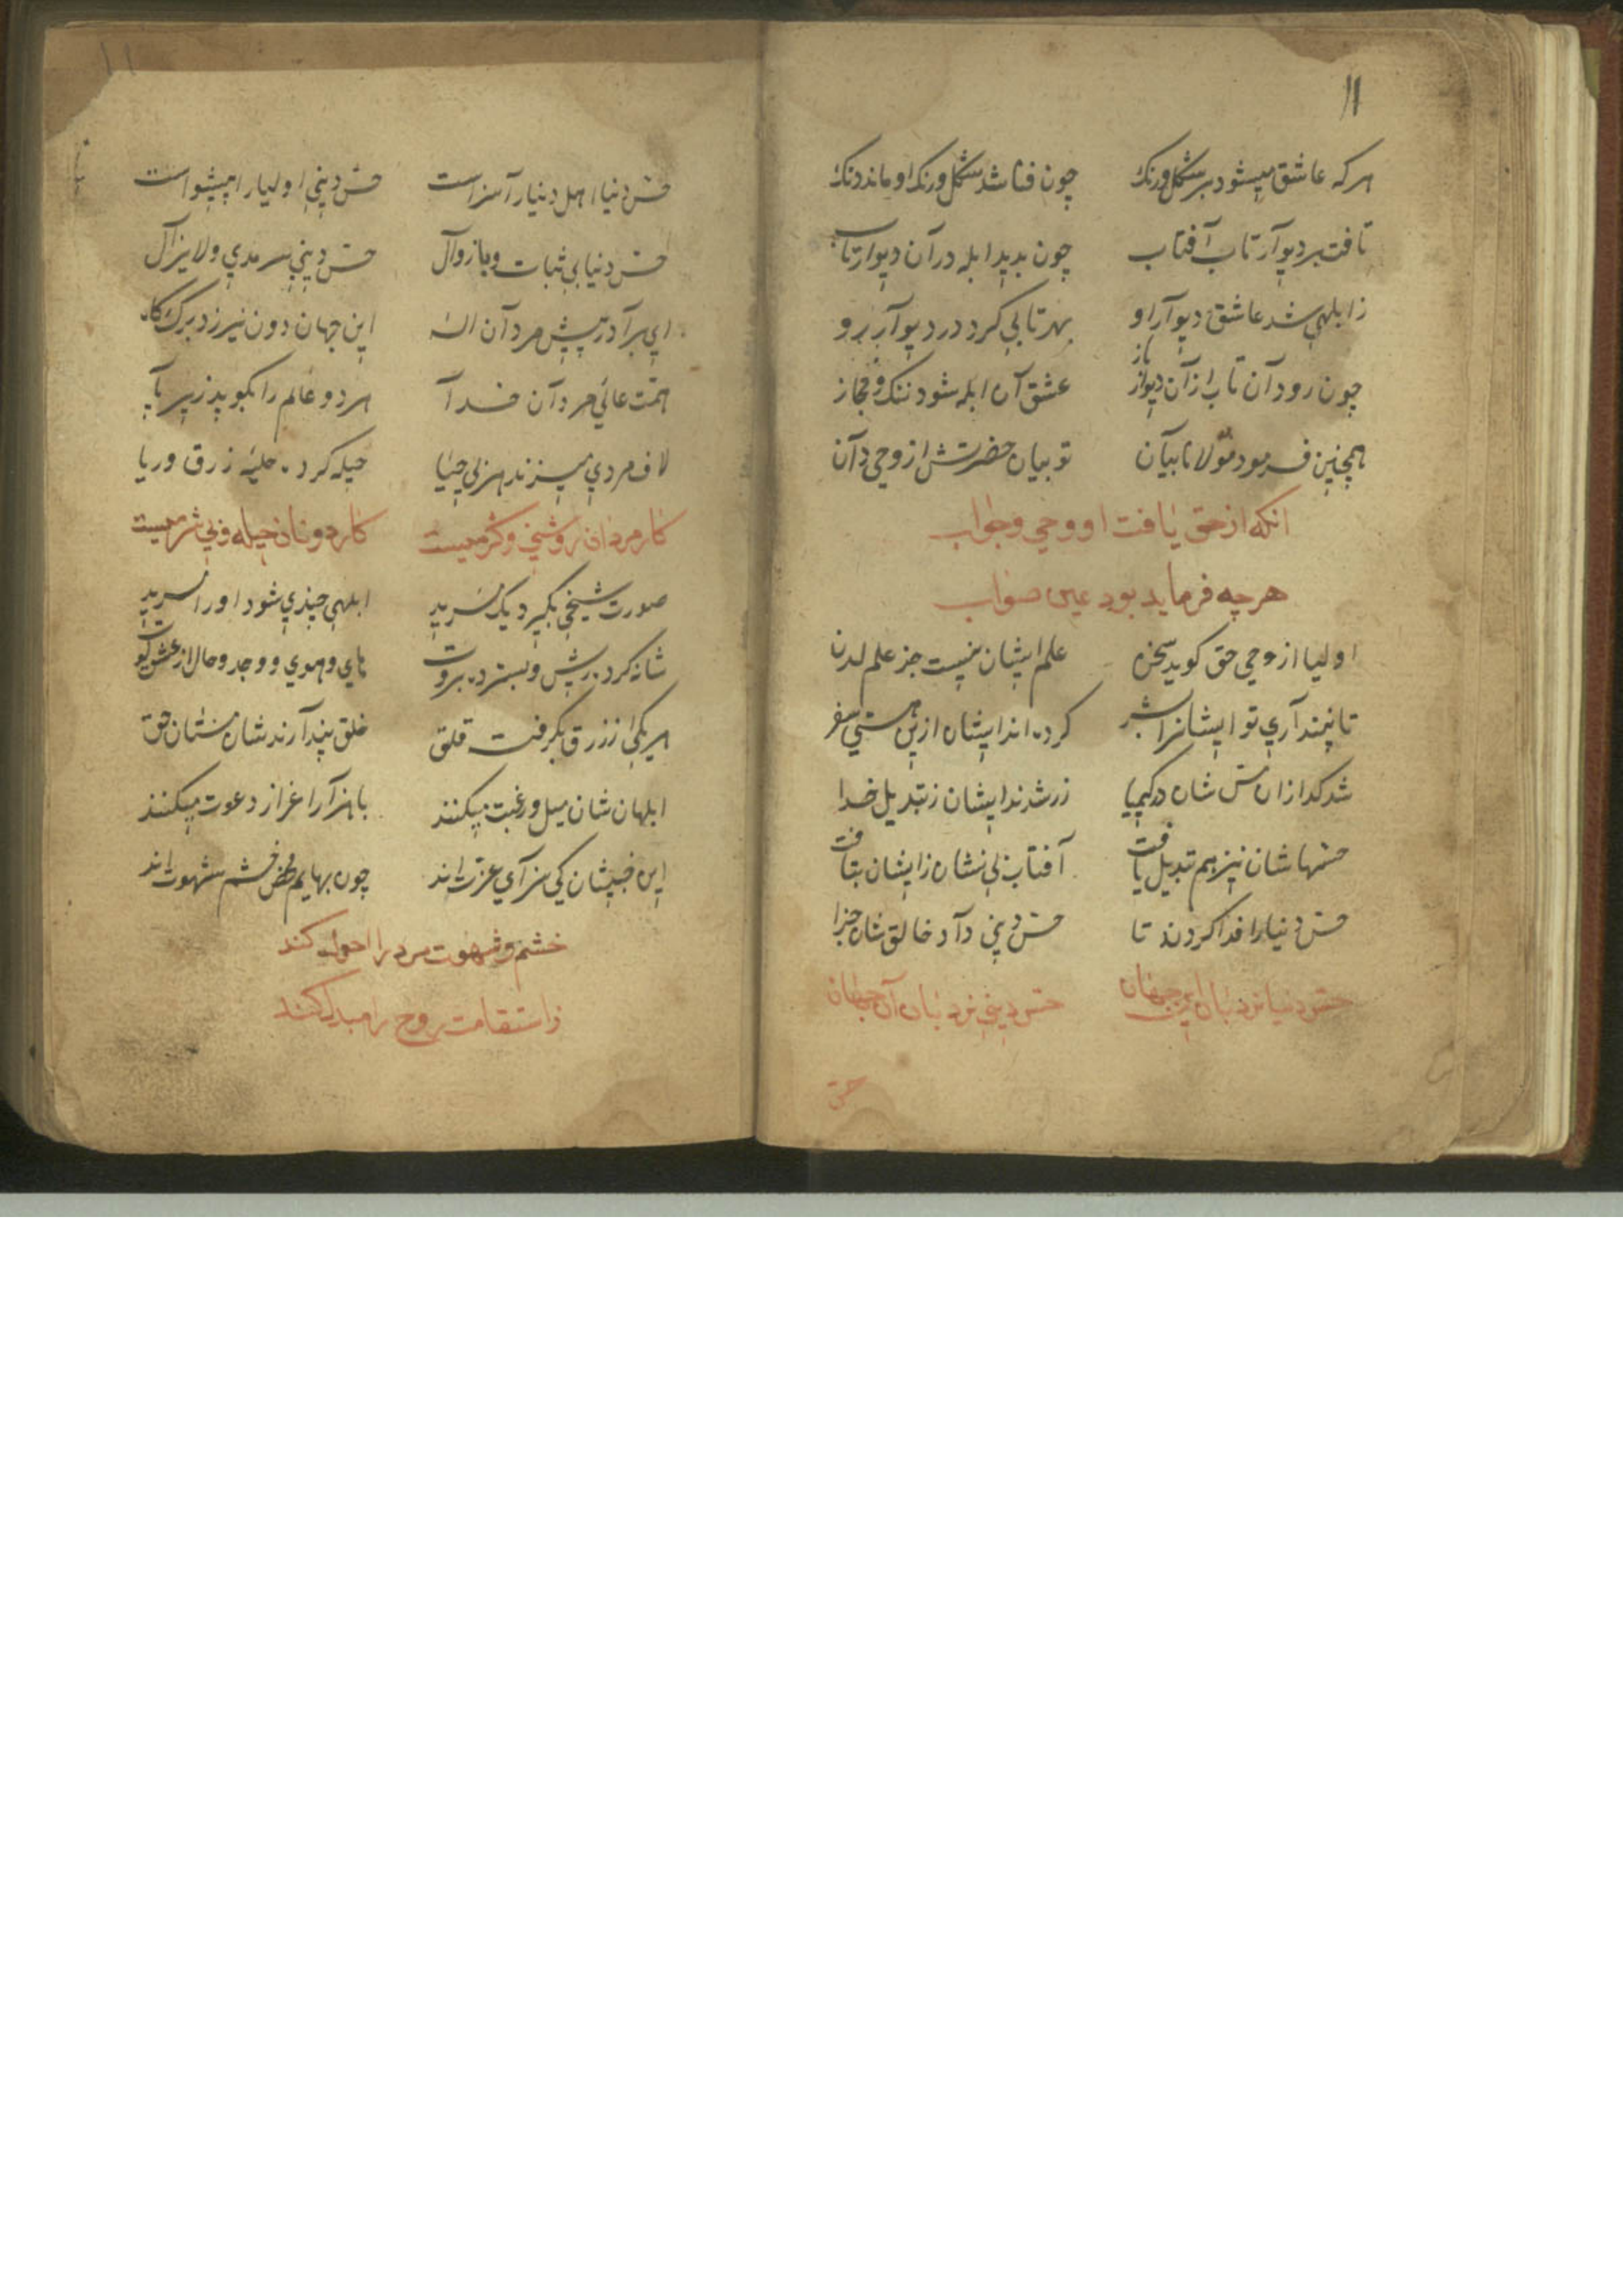 ۱۱
هرکه عاشق میشود بر شکل ورنک چون فنا شد شکل ورنک او ماند دنک
تافت بر دیوآر تاب آفتاب چون بدید ابله در آن دیوار تاب
زابلهی شد عاشق دیوآر او بهر تابی کرد در دیوآر رو
چون رود آن تاب از آن دیوار باز عشق آن ابله شود ننک و مجاز
همچنین فرمود مولانا بیآن تو بیان حضرتش از وحی دآن
انکه از حق یافت او وحی وجواب
هرچه فرماید بود عین صواب
اولیا از وحی حق کوید سخن علم ایشان نیست جز علم لدن
تا نپنداری تو ایشانرا بشر کرده اند ایشان ازین هستی سفر
شد کدازان مس شان در کیمیا زر شدند ایشان ز تبدیل خدا
حسهاشان نیز هم تبدیل یافت آفتاب بی نشان زایشان بتافت
حس دنیارا فدا کردند تا حس دینی دآد خالق شان جزا
حس دنیا نردبان این جهان حس دینی نردبان آن جهان
حس
۱۱
حس دنیا اهل دنیارآ سزاست حس دینی اولیارا پیشواست
حس دنیا بی ثبات وبا زوآل حس دینی سرمدی ولا یزآل
ای برآدر پیش مردآن اله این جهان دون نیرزد برک کاه
همت عالی مردآن خدآ هر دو عالم را بکوبد زیر پآ
لاف مردی میزند هر بی حیا حیله کرده حلیه زرق وریا
کار مردان روشنی وکرمیست کار دونان حیله وبی شرمیست
صورت شیخی بکیرد یک سرید ابلهی چندی شود اورا مرید
شانه کرده ریش وبسترده بروت های وهوی ووجد وحال از عشق کو
هریکی از زرق بکرفت قلق خلق پندآرند شان مستان حق
ابلهان شان میل ورغبت میکنند با هزآر اعزاز دعوت میکنند
این خبیثان کی سزآی عزت اند چون بهایم محض خشم شهوت اند
خشم وشهوت مرد را احول کند
زاستقامت روح را مبدل کند